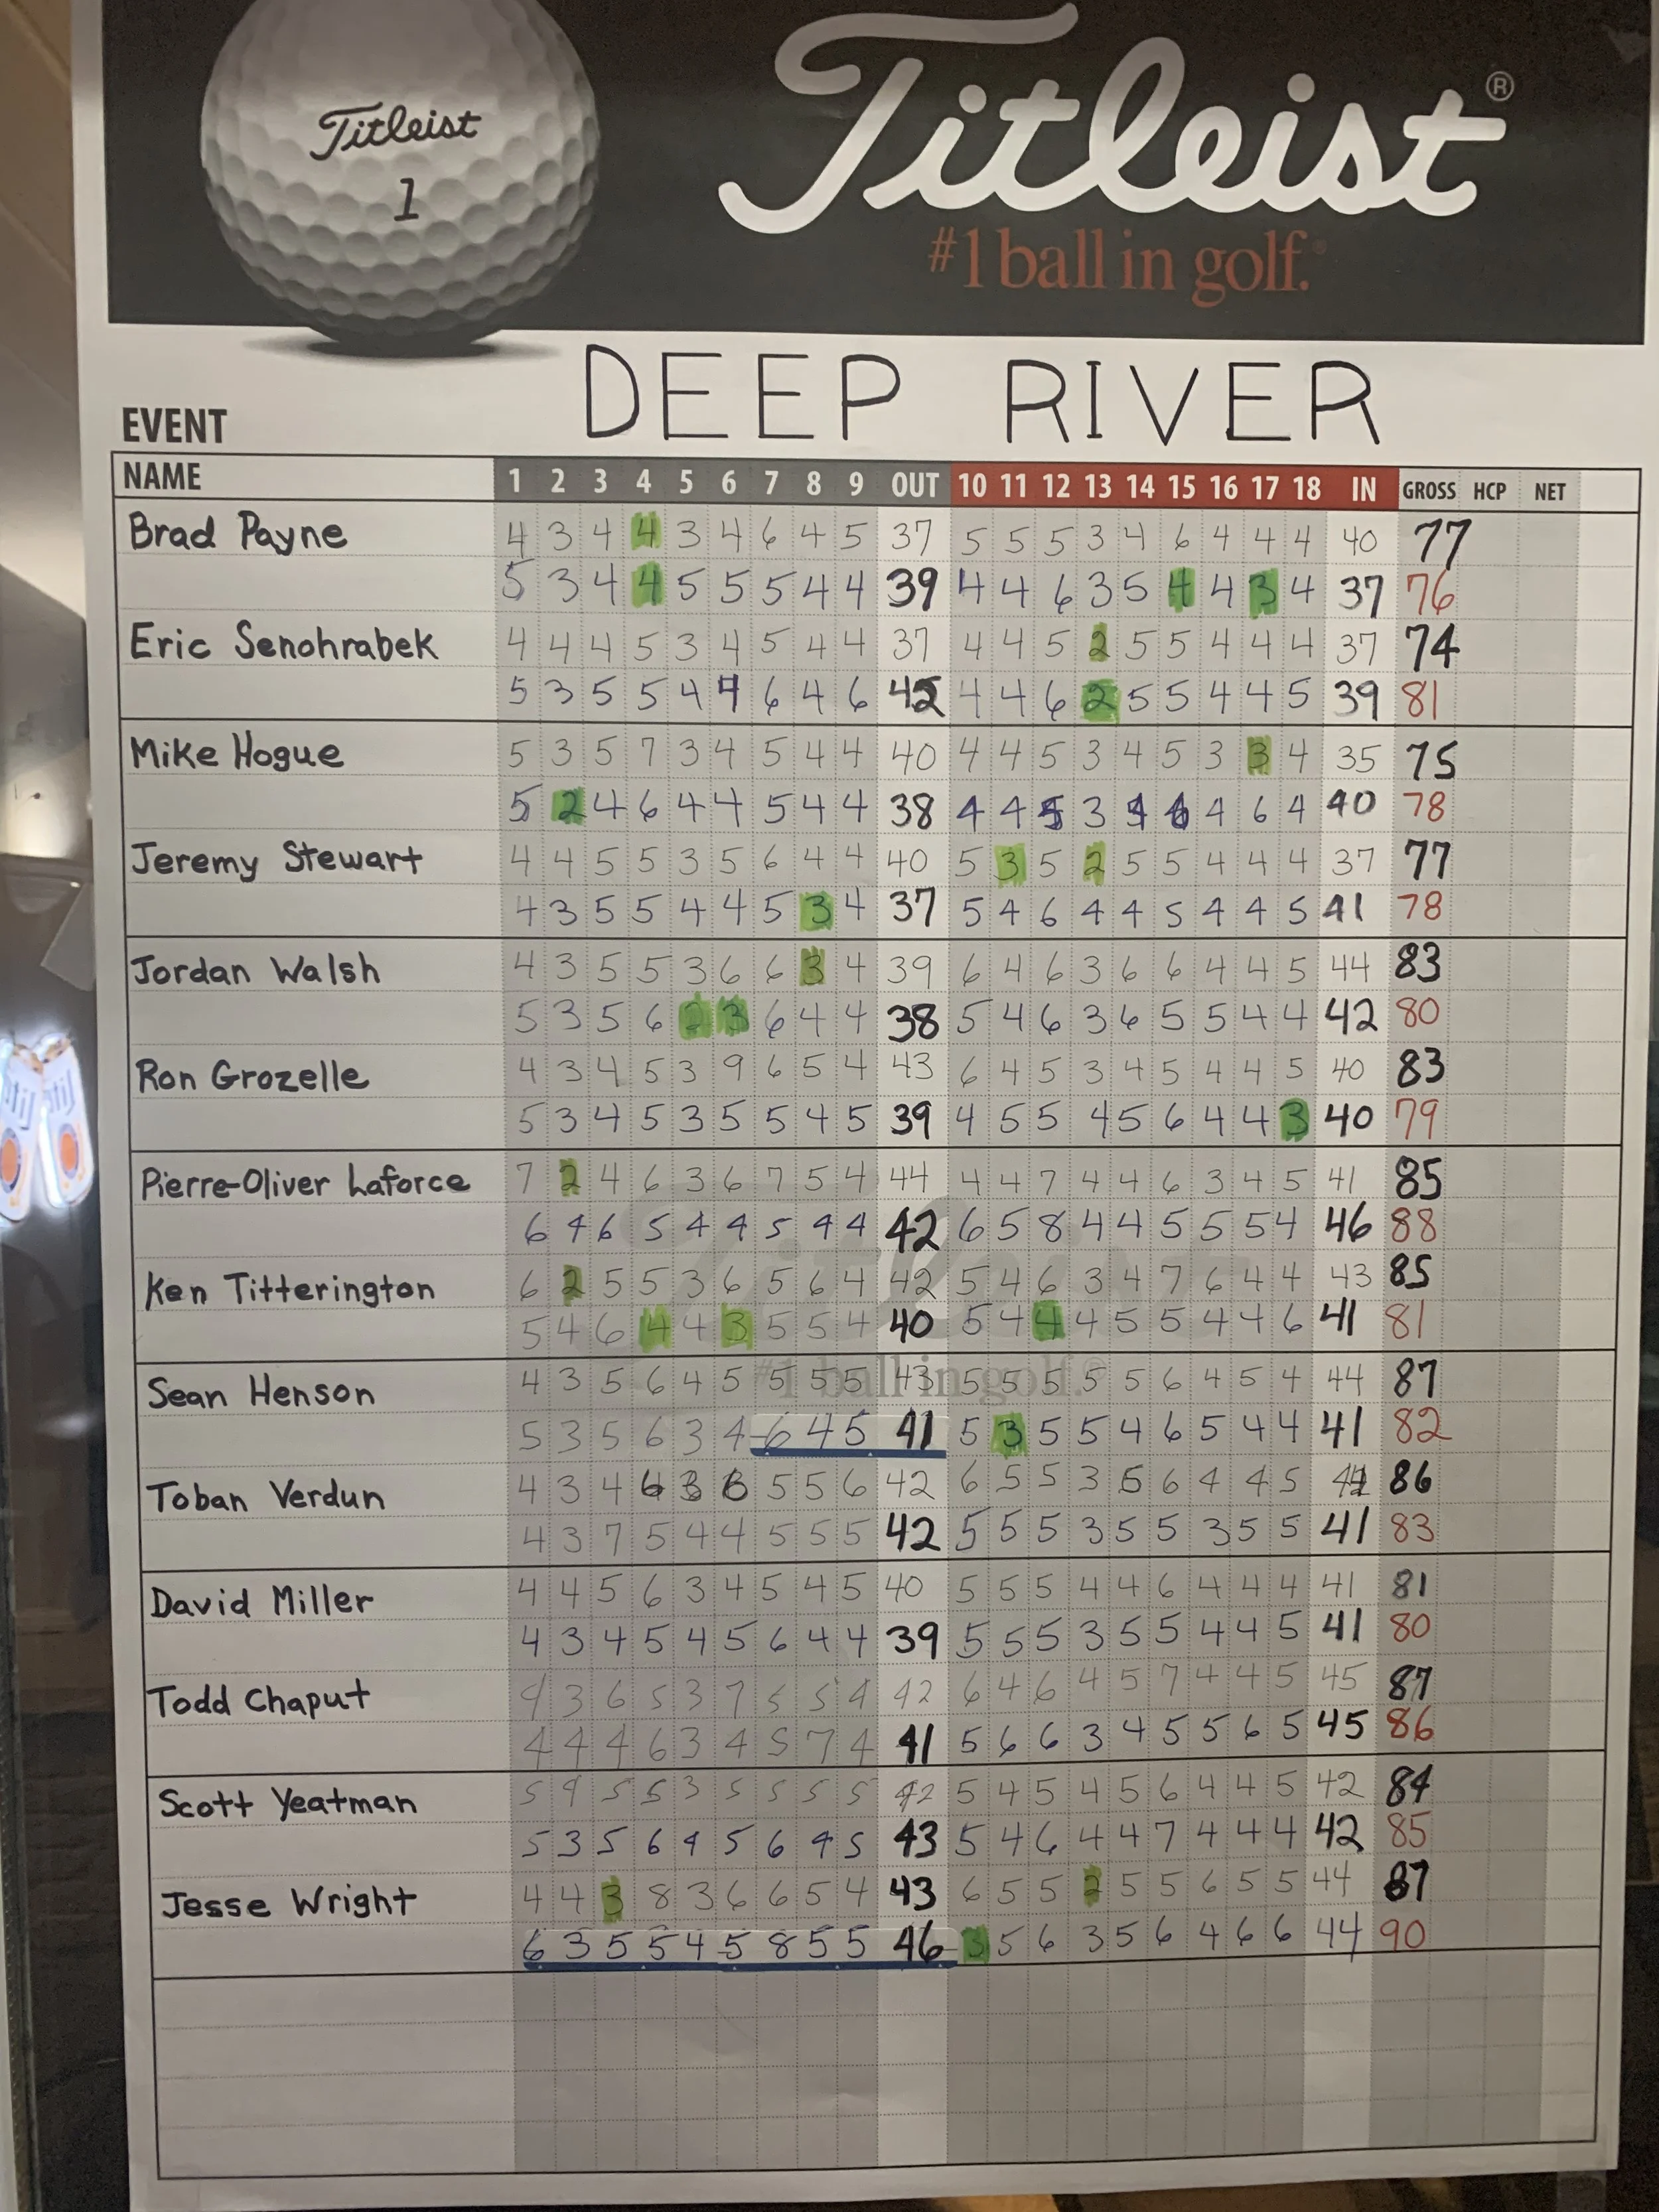 Titleist
1
Titleist®
#1 ball in golf.®
DEEP RIVER
EVENT
NAME 1 2 3 4 5 6 7 8 9 OUT 10 11 12 13 14 15 16 17 18 IN GROSS HCP NET
Brad Payne 4 3 4 4 3 4 6 4 5 37 5 5 5 3 4 6 4 4 4 40 77
5 3 4 4 5 5 5 4 4 39 4 4 6 3 5 4 4 3 4 37 76
Eric Senohrabek 4 4 4 5 3 4 5 4 4 37 4 4 5 2 5 5 4 4 4 37 74
5 3 5 5 4 4 6 4 6 42 4 4 6 2 5 5 4 4 5 39 81
Mike Hogue 5 3 5 7 3 4 5 4 4 40 4 4 5 3 4 5 3 3 4 35 75
5 2 4 6 4 4 5 4 4 38 4 4 3 4 6 4 40 78
Jeremy Stewart 4 4 5 5 3 5 6 4 4 40 5 3 5 2 5 5 4 4 4 37 77
4 3 5 5 4 4 5 3 4 37 5 4 6 4 4 5 4 4 5 41 78
Jordan Walsh 4 3 5 5 3 6 6 3 4 39 6 4 6 3 6 6 4 4 5 44 83
5 3 5 6 2 3 6 4 4 38 5 4 6 3 6 5 5 4 4 42 80
Ron Grozelle 4 3 4 5 3 9 6 5 4 43 6 4 5 3 4 5 4 4 5 40 83
5 3 4 5 3 5 5 4 5 39 4 5 5 4 5 6 4 4 3 40 79
Pierre-Oliver Laforce 7 2 4 6 3 6 7 5 4 44 4 4 7 4 4 6 3 4 5 41 85
6 4 6 5 4 4 5 4 4 42 6 5 8 4 4 5 5 5 4 46 88
Ken Titterington 6 2 5 5 3 6 5 6 4 42 5 4 6 3 4 7 6 4 4 43 85
5 4 6 4 4 3 5 5 4 40 5 4 4 4 5 5 4 4 6 41 81
#1 ball in golf.®
Sean Henson 4 3 5 6 4 5 5 5 5 43 5 5 5 5 5 6 4 5 4 44 87
5 3 5 6 3 4 6 4 5 41 5 3 5 5 4 6 5 4 4 41 82
Toban Verdun 4 3 4 6 3 6 5 5 6 42 6 5 5 3 6 6 4 4 5 44 86
4 3 7 5 4 4 5 5 5 42 5 5 5 3 5 5 3 5 5 41 83
David Miller 4 4 5 6 3 4 5 4 5 40 5 5 5 4 4 6 4 4 4 41 81
4 3 4 5 4 5 6 4 4 39 5 5 5 3 5 5 4 4 5 41 80
Todd Chaput 4 3 6 5 3 7 5 5 4 42 6 4 6 4 5 7 4 4 5 45 87
4 4 4 6 3 4 5 7 4 41 5 6 6 3 4 5 5 6 5 45 86
Scott Yeatman 5 4 5 5 3 5 5 5 5 42 5 4 5 4 5 6 4 4 5 42 84
5 3 5 6 4 5 6 4 5 43 5 4 6 4 4 7 4 4 4 42 85
Jesse Wright 4 4 3 8 3 6 6 5 4 43 6 5 5 2 5 5 6 5 5 44 87
6 3 5 5 4 5 8 5 5 46 3 5 6 3 5 6 4 6 6 44 90